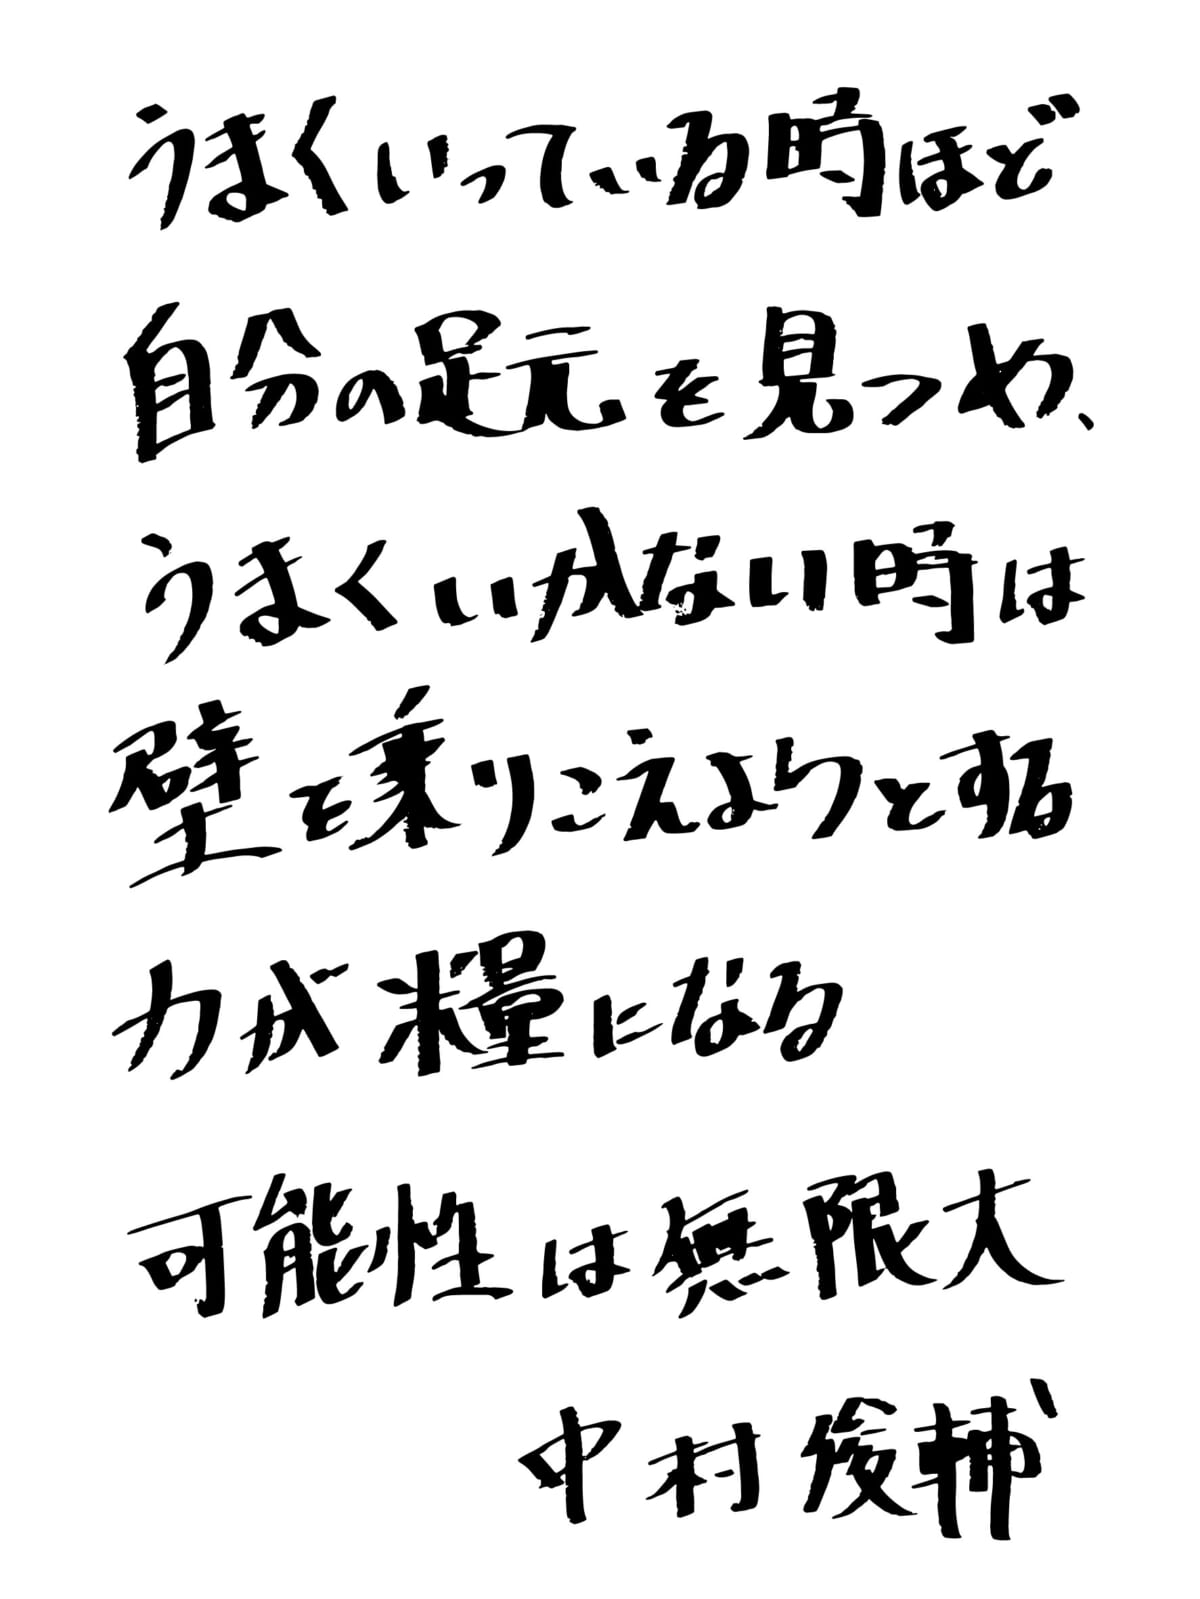 うまくいっている時ほど
自分の足元を見つめ、
うまくいかない時は
壁を乗りこえようとする
力が糧になる
可能性は無限大
中村俊輔